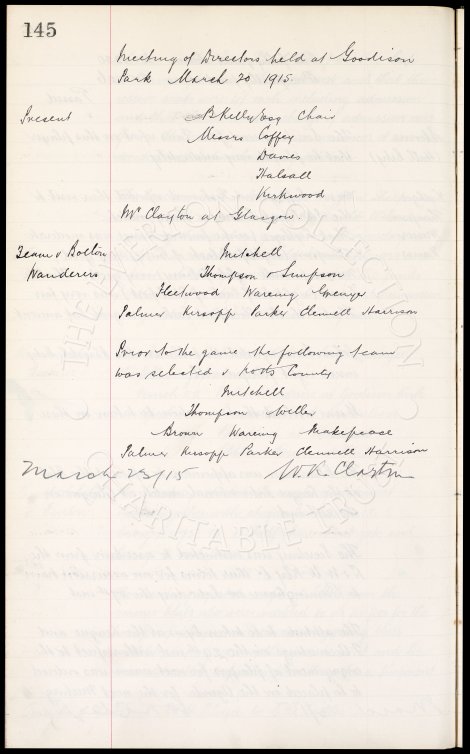 145
Meeting of Directors held at Goodison
Park March 20 1915
Present
A B Kelly Esq Chair
Messrs Coffey
Davies
Halsall
Kirkwood
Mr Clayton at Glasgow.
Team v Bolton
Wanderers
Mitchell
Thompson & Simpson
Fleetwood Wareing Grenyer
Palmer Kirsopp Parker Clennell Harrison
Prior to the game the following team
was selected v Notts County
Mitchell
Thompson Weller
Brown Wareing Makepeace
Palmer Kirsopp Parker Clennell Harrison
March 23/15
W. R. Clayton
THE EVERTON COLLECTION
CHARITABLE TRUST